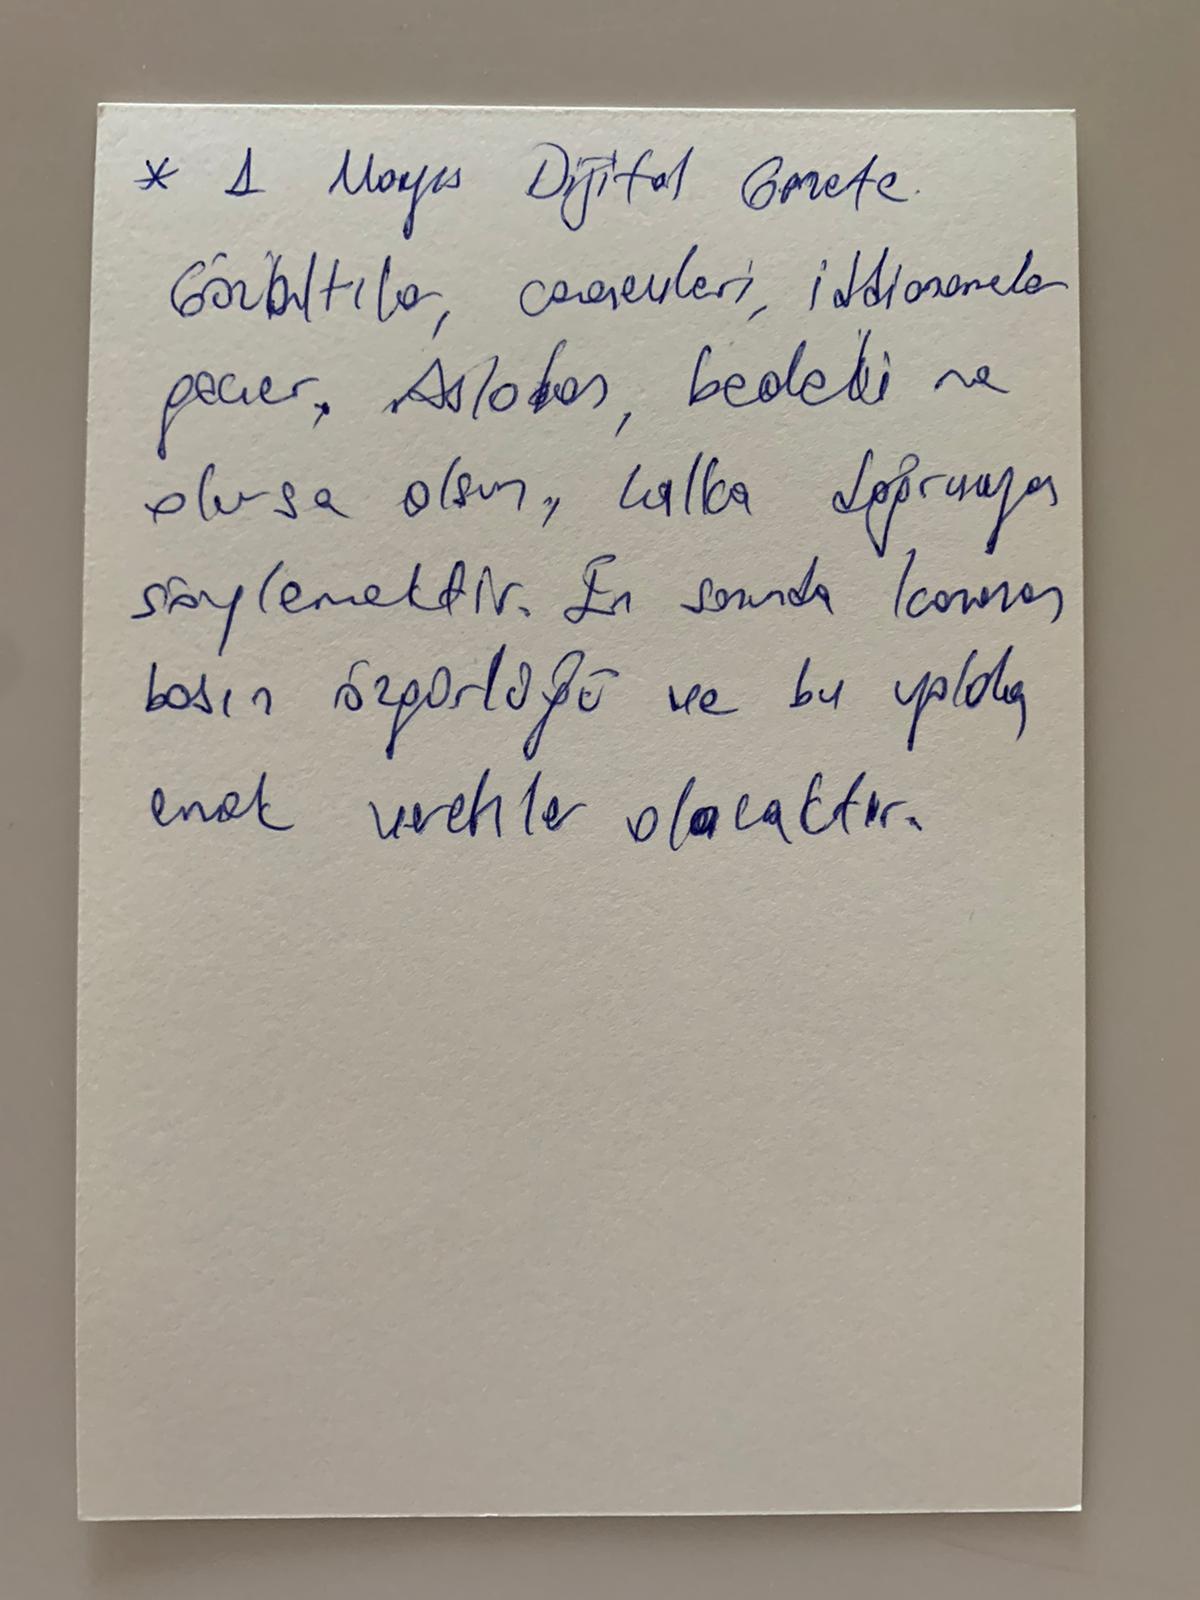 * 1 Mayıs Dijital Gazete
Gözaltılar, cezaevleri, iddianameler
geçer. Aslolan, bedeli ne
olursa olsun, halka doğruyu
söylemektir. En sonunda kazanan
basın özgürlüğü ve bu yolda
emek verenler olacaktır.